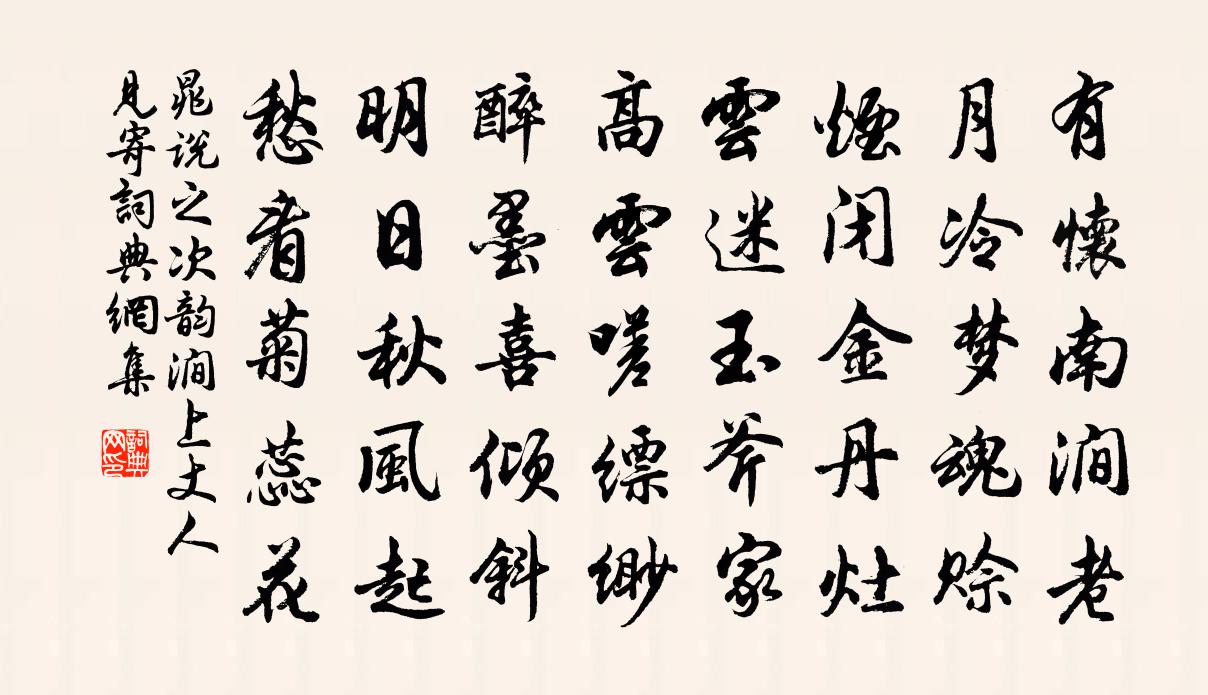 有懷南澗老
月冷梦魂赊
煙闭金丹灶
雲迷玉斧家
高雲嗟缥缈
醉墨喜倾斜
明日秋風起
愁看菊蕊花
晁说之次韵澗上丈人
見寄詞典網集
詞典
网印